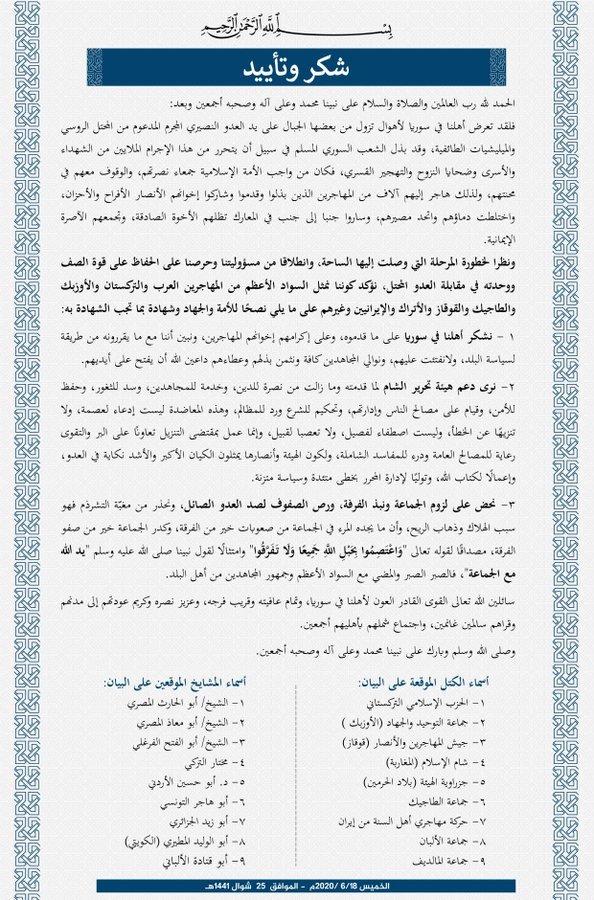 بسم الله الرحمن الرحيم
شكر وتأييد
الحمد لله رب العالمين والصلاة والسلام على نبينا محمد وعلى آله وصحبه أجمعين وبعد:
فلقد تعرض أهلنا في سوريا لأهوال تزول من بعضها الجبال على يد العدو النصيري المجرم المدعوم من المحتل الروسي
والميليشيات الطائفية، وقد بذل الشعب السوري المسلم في سبيل أن يتحرر من هذا الإجرام الملايين من الشهداء
والأسرى وضحايا النزوح والتهجير القسري، فكان من واجب الأمة الإسلامية جمعاء نصرتهم، والوقوف معهم في
محنتهم، ولذلك هاجر إليهم آلاف من المهاجرين الذين بذلوا وقدموا وشاركوا إخوانهم الأنصار الأفراح والأحزان،
واختلطت دماؤهم واتحد مصيرهم، وساروا جنبا إلى جنب في المعارك تظلهم الأخوة الصادقة، وتجمعهم الآصرة
الإيمانية.
ونظرا لخطورة المرحلة التي وصلت إليها الساحة، وانطلاقا من مسؤوليتنا وحرصنا على الحفاظ على قوة الصف
ووحدته في مقابلة العدو المحتل، نؤكد كوننا نمثل السواد الأعظم من المهاجرين العرب والتركستان والأوزبك
والطاجيك والقوقاز والأتراك والإيرانيين وغيرهم على ما يلي نصحًا للأمة والجهاد وشهادة بما تجب الشهادة به:
١ - نشكر أهلنا في سوريا على ما قدموه، وعلى إكرامهم إخوانهم المهاجرين، ونبين أننا مع ما يقررونه من طريقة
لسياسة البلد، ولانفتئت عليهم، ونوالي المجاهدين كافة ونثمن بذلهم وعطاءهم داعين الله أن يفتح على أيديهم.
٢- نرى دعم هيئة تحرير الشام لما قدمته وما زالت من نصرة للدين، وخدمة للمجاهدين، وسد للثغور، وحفظ
للأمن، وقيام على مصالح الناس وإدارتهم، وتحكيم للشرع ورد للمظالم، وهذه المعاضدة ليست إدعاء لعصمة، ولا
تنزيهًا عن الخطأ، وليست اصطفاء لفصيل، ولا تعصبا لقبيل، وإنما عمل بمقتضى التنزيل تعاونًا على البر والتقوى
رعاية للمصالح العامة ودرء للمفاسد الشاملة، ولكون الهيئة وأنصارها يمثلون الكيان الأكبر والأشد نكاية في العدو،
وإعمالًا لكتاب الله، وتوليًا لإدارة المحرر بخطى متئدة وسياسة متزنة.
٣- نحض على لزوم الجماعة ونبذ الفرقة، ورص الصفوف لصد العدو الصائل، ونحذر من مغبّة التشرذم فهو
سبب الهلاك وذهاب الريح، وأن ما يجده المرء في الجماعة من صعوبات خير من الفرقة، وكدر الجماعة خير من صفو
الفرقة، مصداقًا لقوله تعالى "وَاعْتَصِمُوا بِحَبْلِ اللَّهِ جَمِيعًا وَلَا تَفَرَّقُوا" وامتثالًا لقول نبينا صلى الله عليه وسلم "يد الله
مع الجماعة"، فالصبر الصبر والمضي مع السواد الأعظم وجمهور المجاهدين من أهل البلد.
سائلين الله تعالى القوى القادر العون لأهلنا في سوريا، وتمام عافيته وقريب فرجه، وعزيز نصره وكريم عودتهم إلى مدنهم
وقراهم سالمين غانمين، واجتماع شملهم بأهليهم أجمعين.
وصلى الله وسلم وبارك على نبينا محمد وعلى آله وصحبه أجمعين.
أسماء الكتل الموقعة على البيان:
١- الحزب الإسلامي التركستاني
٢- جماعة التوحيد والجهاد (الأوزبك )
٣- جيش المهاجرين والأنصار (قوقاز)
٤- شام الإسلام (المغاربة)
٥- جزراوية الهيئة (بلاد الحرمين)
٦- جماعة الطاجيك
٧- حركة مهاجري أهل السنة من إيران
٨- جماعة الألبان
٩- جماعة المالديف
أسماء المشايخ الموقعين على البيان:
١- الشيخ/ أبو الحارث المصري
٢- الشيخ/ أبو معاذ المصري
٣- الشيخ/ أبو الفتح الفرغلي
٤- مختار التركي
٥- د. أبو حسين الأردني
٦- أبو هاجر التونسي
٧- أبو زيد الجزائري
٨- أبو الوليد المطيري (الكويتي)
٩- أبو قتادة الألباني
الخميس 6/18 /2020م - الموافق 25 شوال 1441هـ